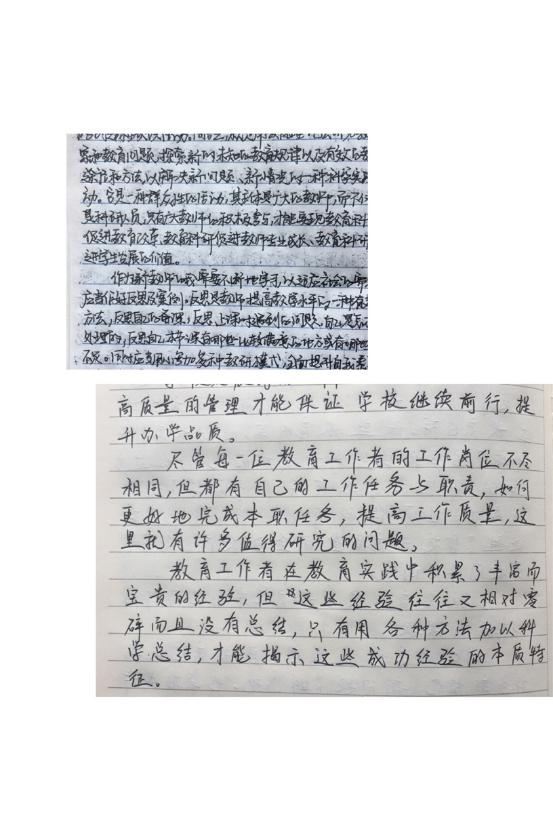 案和教育问题,探索新的未知的教育规律以及有效的教
途径和方法,以解决新问题、新情况的一种科学实践
动。它是一种群众性的活动,其主体是广大的教师,而不仅
是科研人员,只有广大教师的积极参与,才能实现教育科
促进教育改革、教育科研促进教师专业成长、教育科研
进学生发展的价值。
作为新教师的我需要不断地学习以适应
应当作好反思及案例。反思是教师提高教学水平的一种有
方法,反思自己的备课,反思上课时遇到的问题,自己是怎么
处理的,反思自己本节课有哪些比较满意的地方或有哪些
不足。同时应当用心参加各种教研模式,全面提升自我
高质量的管理才能保证 学校继续前行,提
升办学品质。
尽管每一位教育工作者的工作岗位不尽
相同,但都有自己的工作任务与职责,如何
更好地完成本职任务,提高工作质量,这
里就有许多值得研究的问题。
教育工作者在教育实践中积累了丰富而
宝贵的经验,但这些经验往往又相对零
碎而且没有总结,只有用各种方法加以科
学总结,才能揭示这些成功经验的本质特
征。